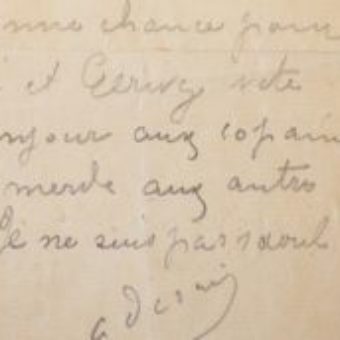 nne chance pour
i et Ecrivez vite
njour aux copain
merde aux autre
Je ne suis pas soul
a Derain